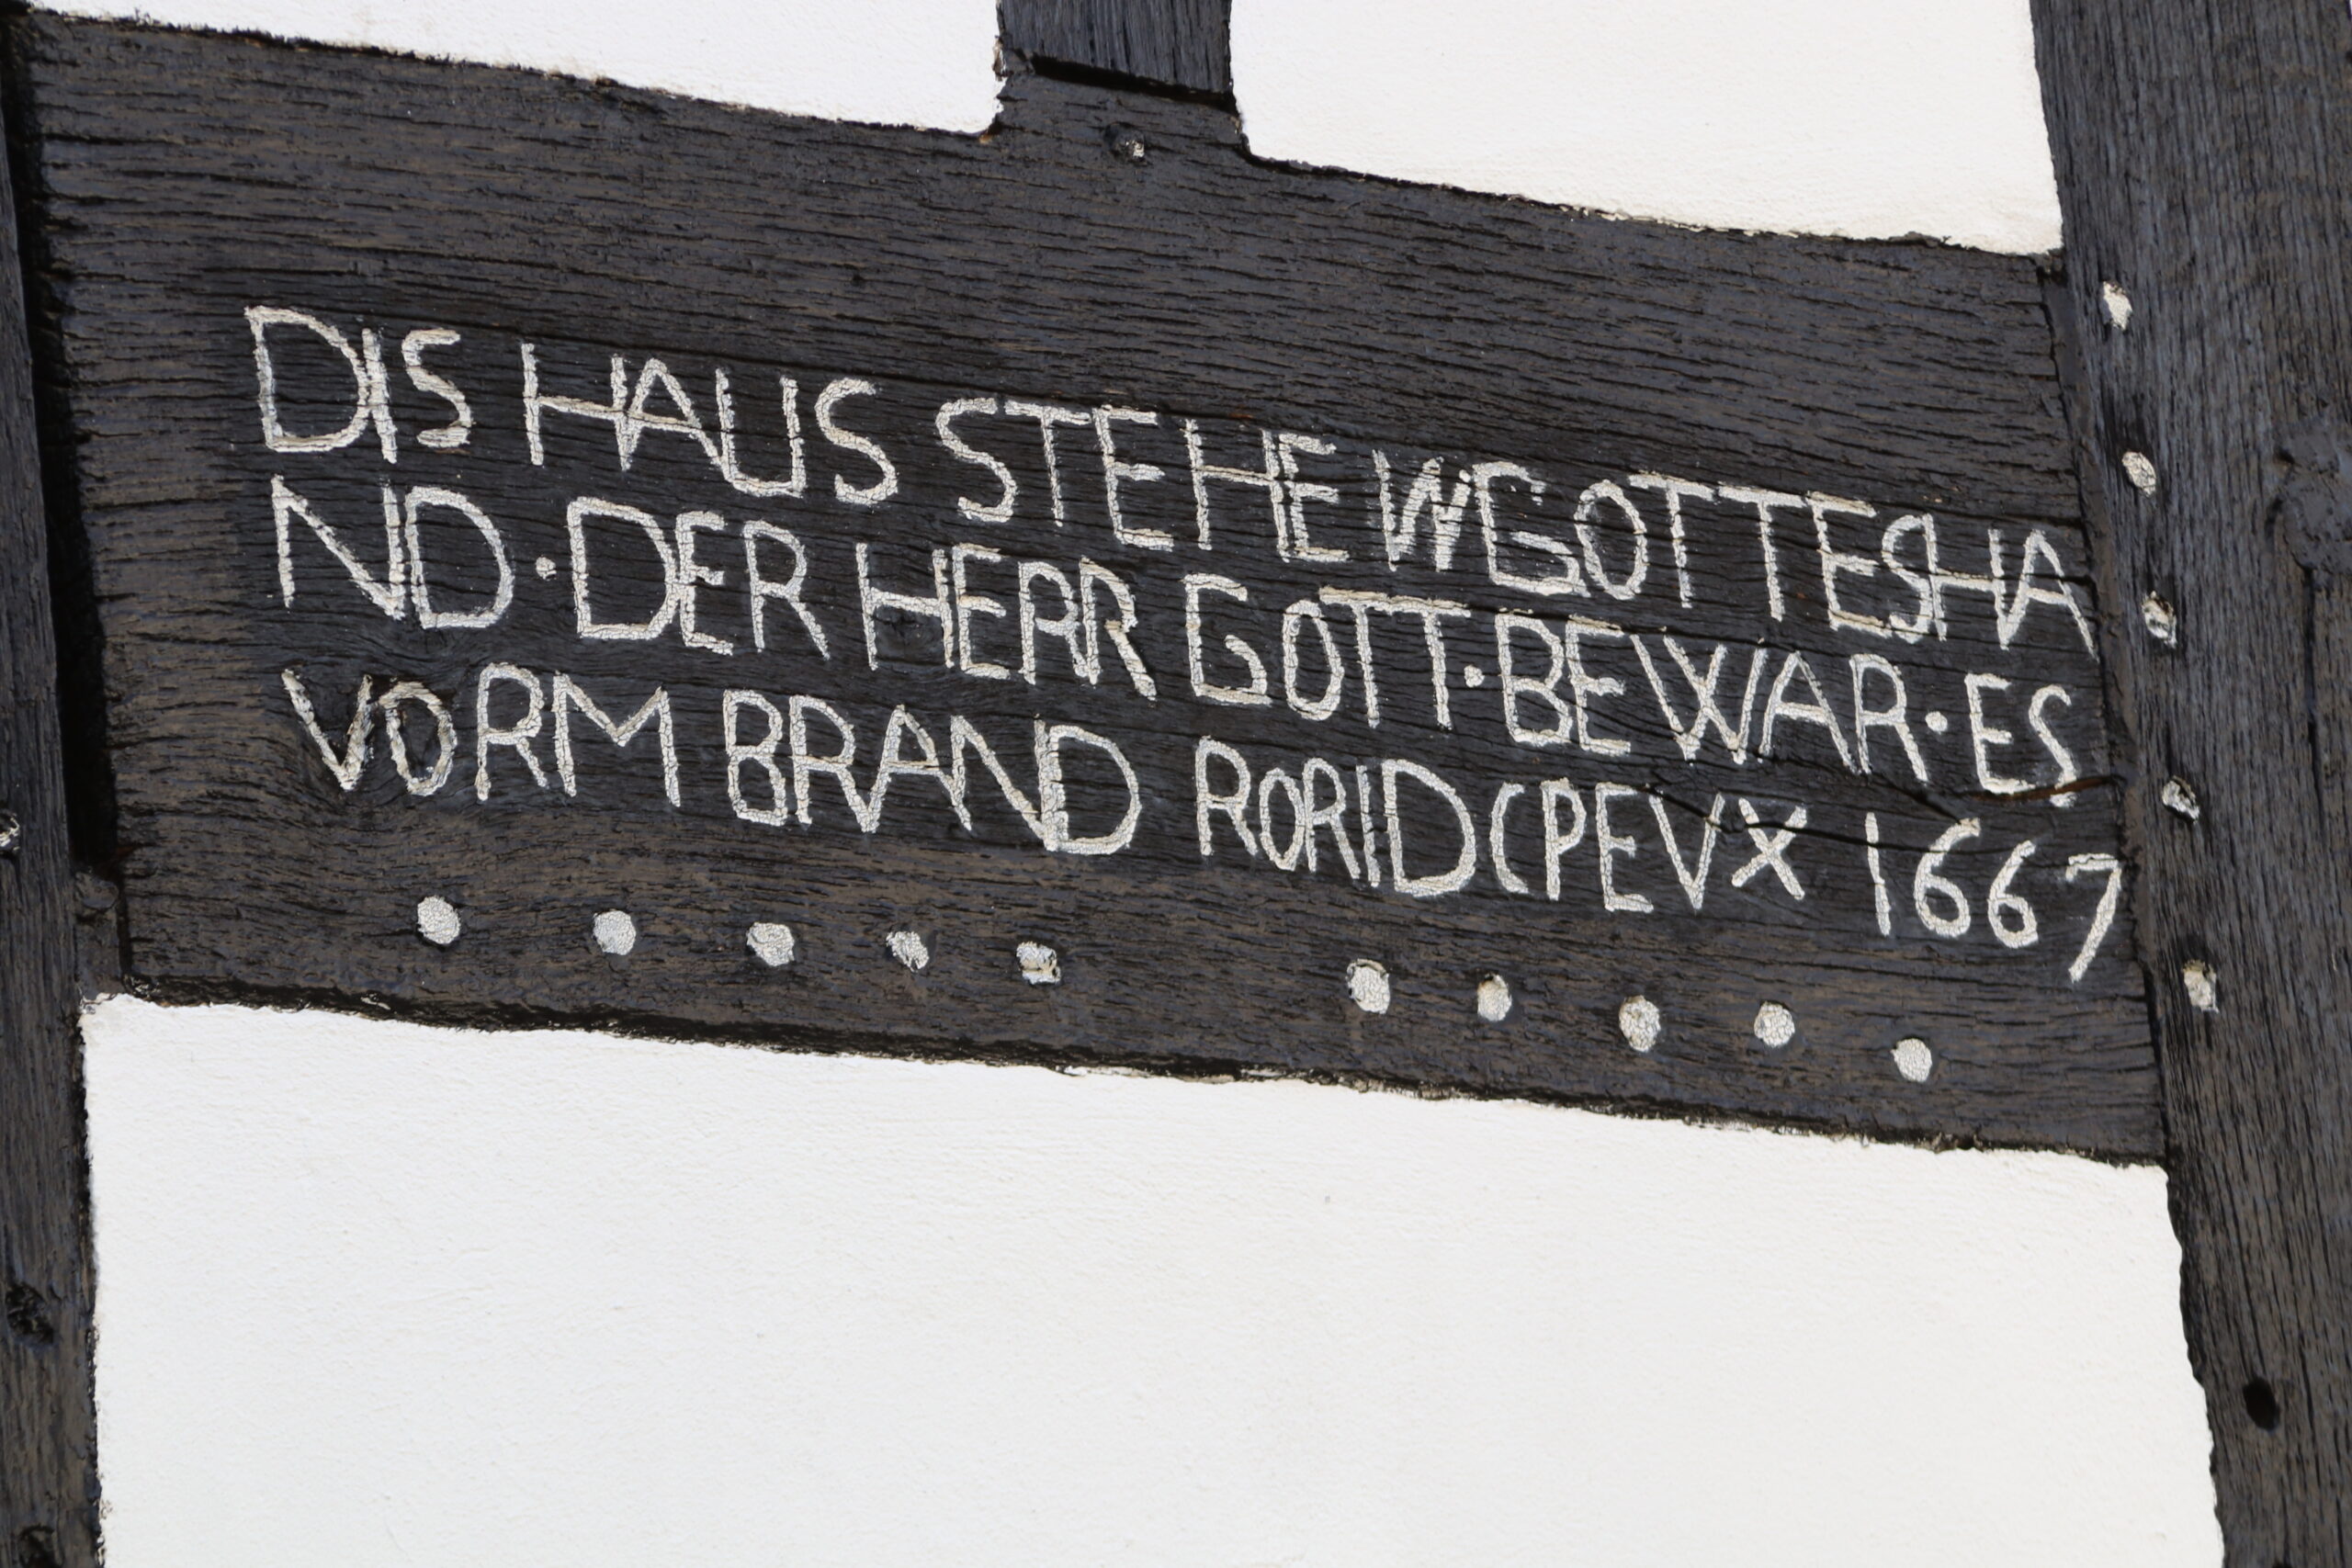 DIS HAUS STEHE W GOTTESHA
ND · DER HERR GOTT · BEWAR · ES
VORM BRAND RORIDCPEVX 1667